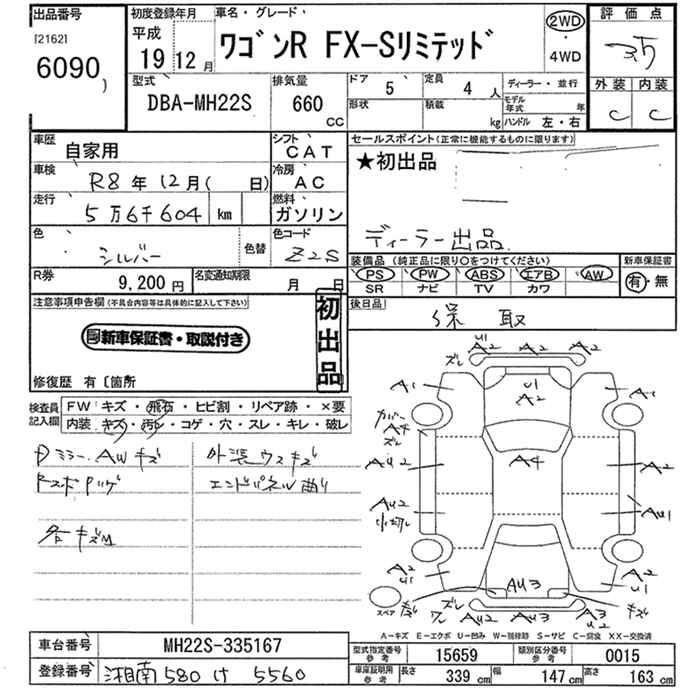 出品番号
[2162]
6090
初度登録年月
平成
19 12月
車名・グレード
ワゴンR FX-Sリミテッド
2WD
・
4WD
評価点
3.5
外装 内装
C C
型式
DBA-MH22S
排気量
660
CC
ドア
5
定員
4 人
形状
積載
kg
ディーラー・並行
モデル年式
年
ハンドル 左・右
車歴
自家用
シフト
CAT
車検
R8年12月( 日)
冷房
AC
走行
5万6千604 km
燃料
ガソリン
色
シルバー
色替
色コード
Z2S
R券
9,200円
名変通知期限
月 日
セールスポイント(正常に機能するものに限ります)
★初出品
ディーラー出品
装備品(純正品に限り○をつけてください)
PS PW ABS エアB AW
SR ナビ TV カワ
新車保証書
有・無
後日品
保 取
注意事項申告欄(不具合内容等は具体的に記入して下さい)
新車保証書・取説付き
初出品
修復歴 有〔箇所
検査員記入欄
FW キズ・飛石・ヒビ割・リペア跡・×要
内装 キズ・汚れ・コゲ・穴・スレ・キレ・破レ
Dミラー、AWキズ
外装ウスキズ
エンドパネル曲り
各キズM
U1
A2 A2 A2
ズレ
A1
U1
A2
A2
カバー
A4
ズレ
A4
AU2
A2
AU2
AU1
A2
U1
AU3
A2
U1
スペア
キズ
ズレ
キズ
ワレ
AU2
A3
U2
A-キズ E-エクボ U-凹み W-補修跡 S-サビ C-腐食 XX-交換済
車台番号
MH22S-335167
登録番号
湘南 580 け 5560
型式指定番号
参考
15659
類別区分番号
参考
0015
車庫証明用
参考
長さ
339 cm
幅
147 cm
高さ
163 cm